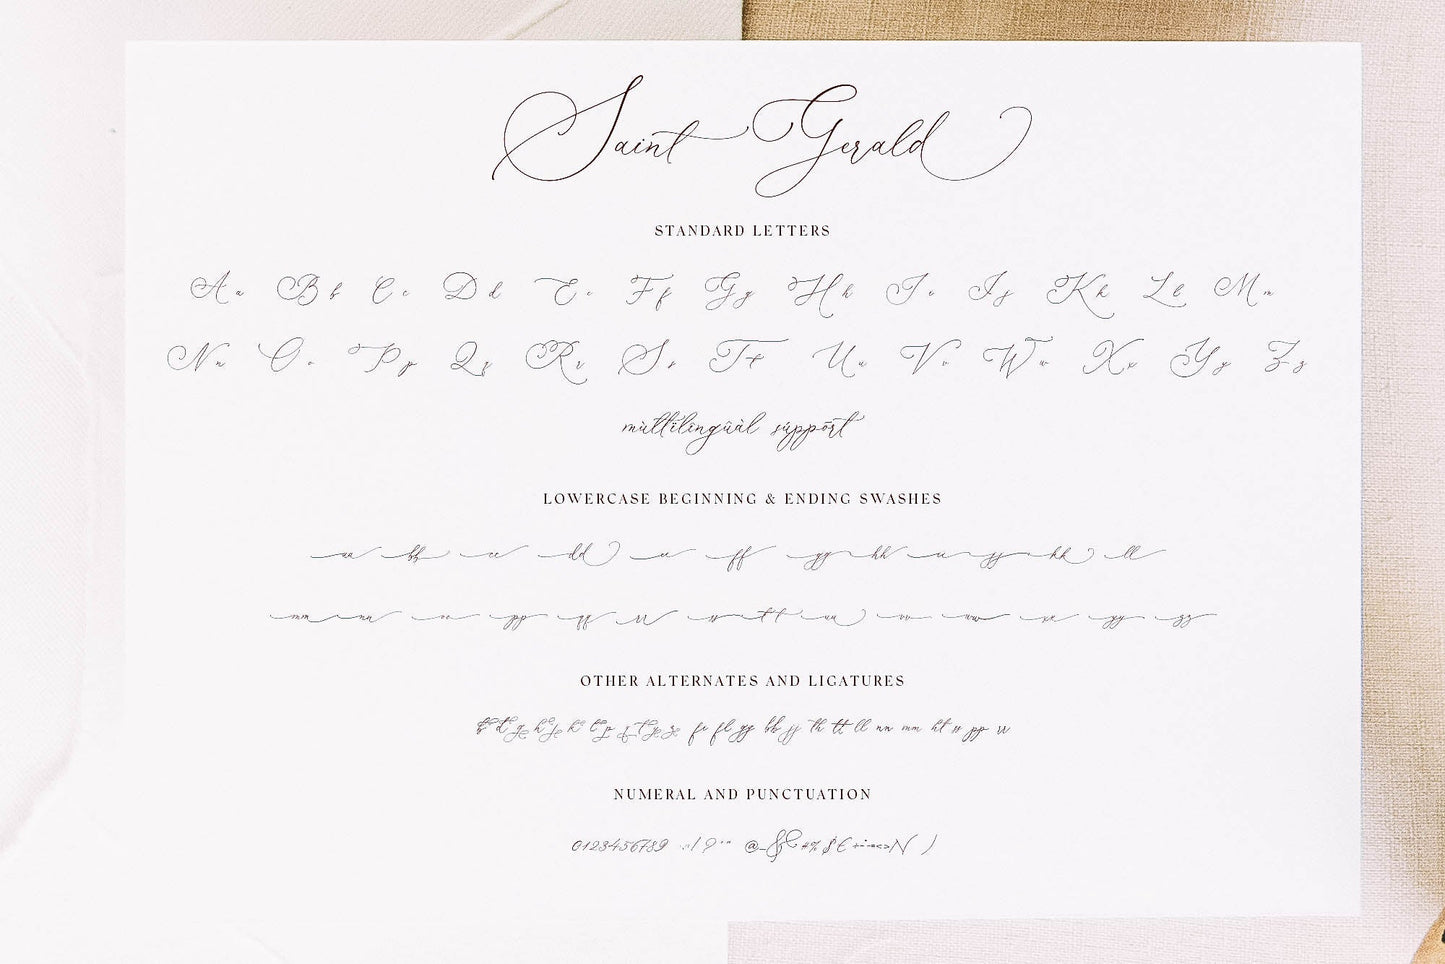 Saint Gerald
STANDARD LETTERS
Aa Bb Cc Dd Ee Ff Gg Hh Ii Jj Kk Ll Mm
Nn Oo Pp Qq Rr Ss Tt Uu Vv Ww Xx Yy Zz
mùltílīngûàl súppōrt
LOWERCASE BEGINNING & ENDING SWASHES
aa bb cc dd ee ff gg hh ii jj kk ll
mm nn oo pp qq rr ss tt uu vv ww xx yy zz
OTHER ALTERNATES AND LIGATURES
NUMERAL AND PUNCTUATION
0123456789